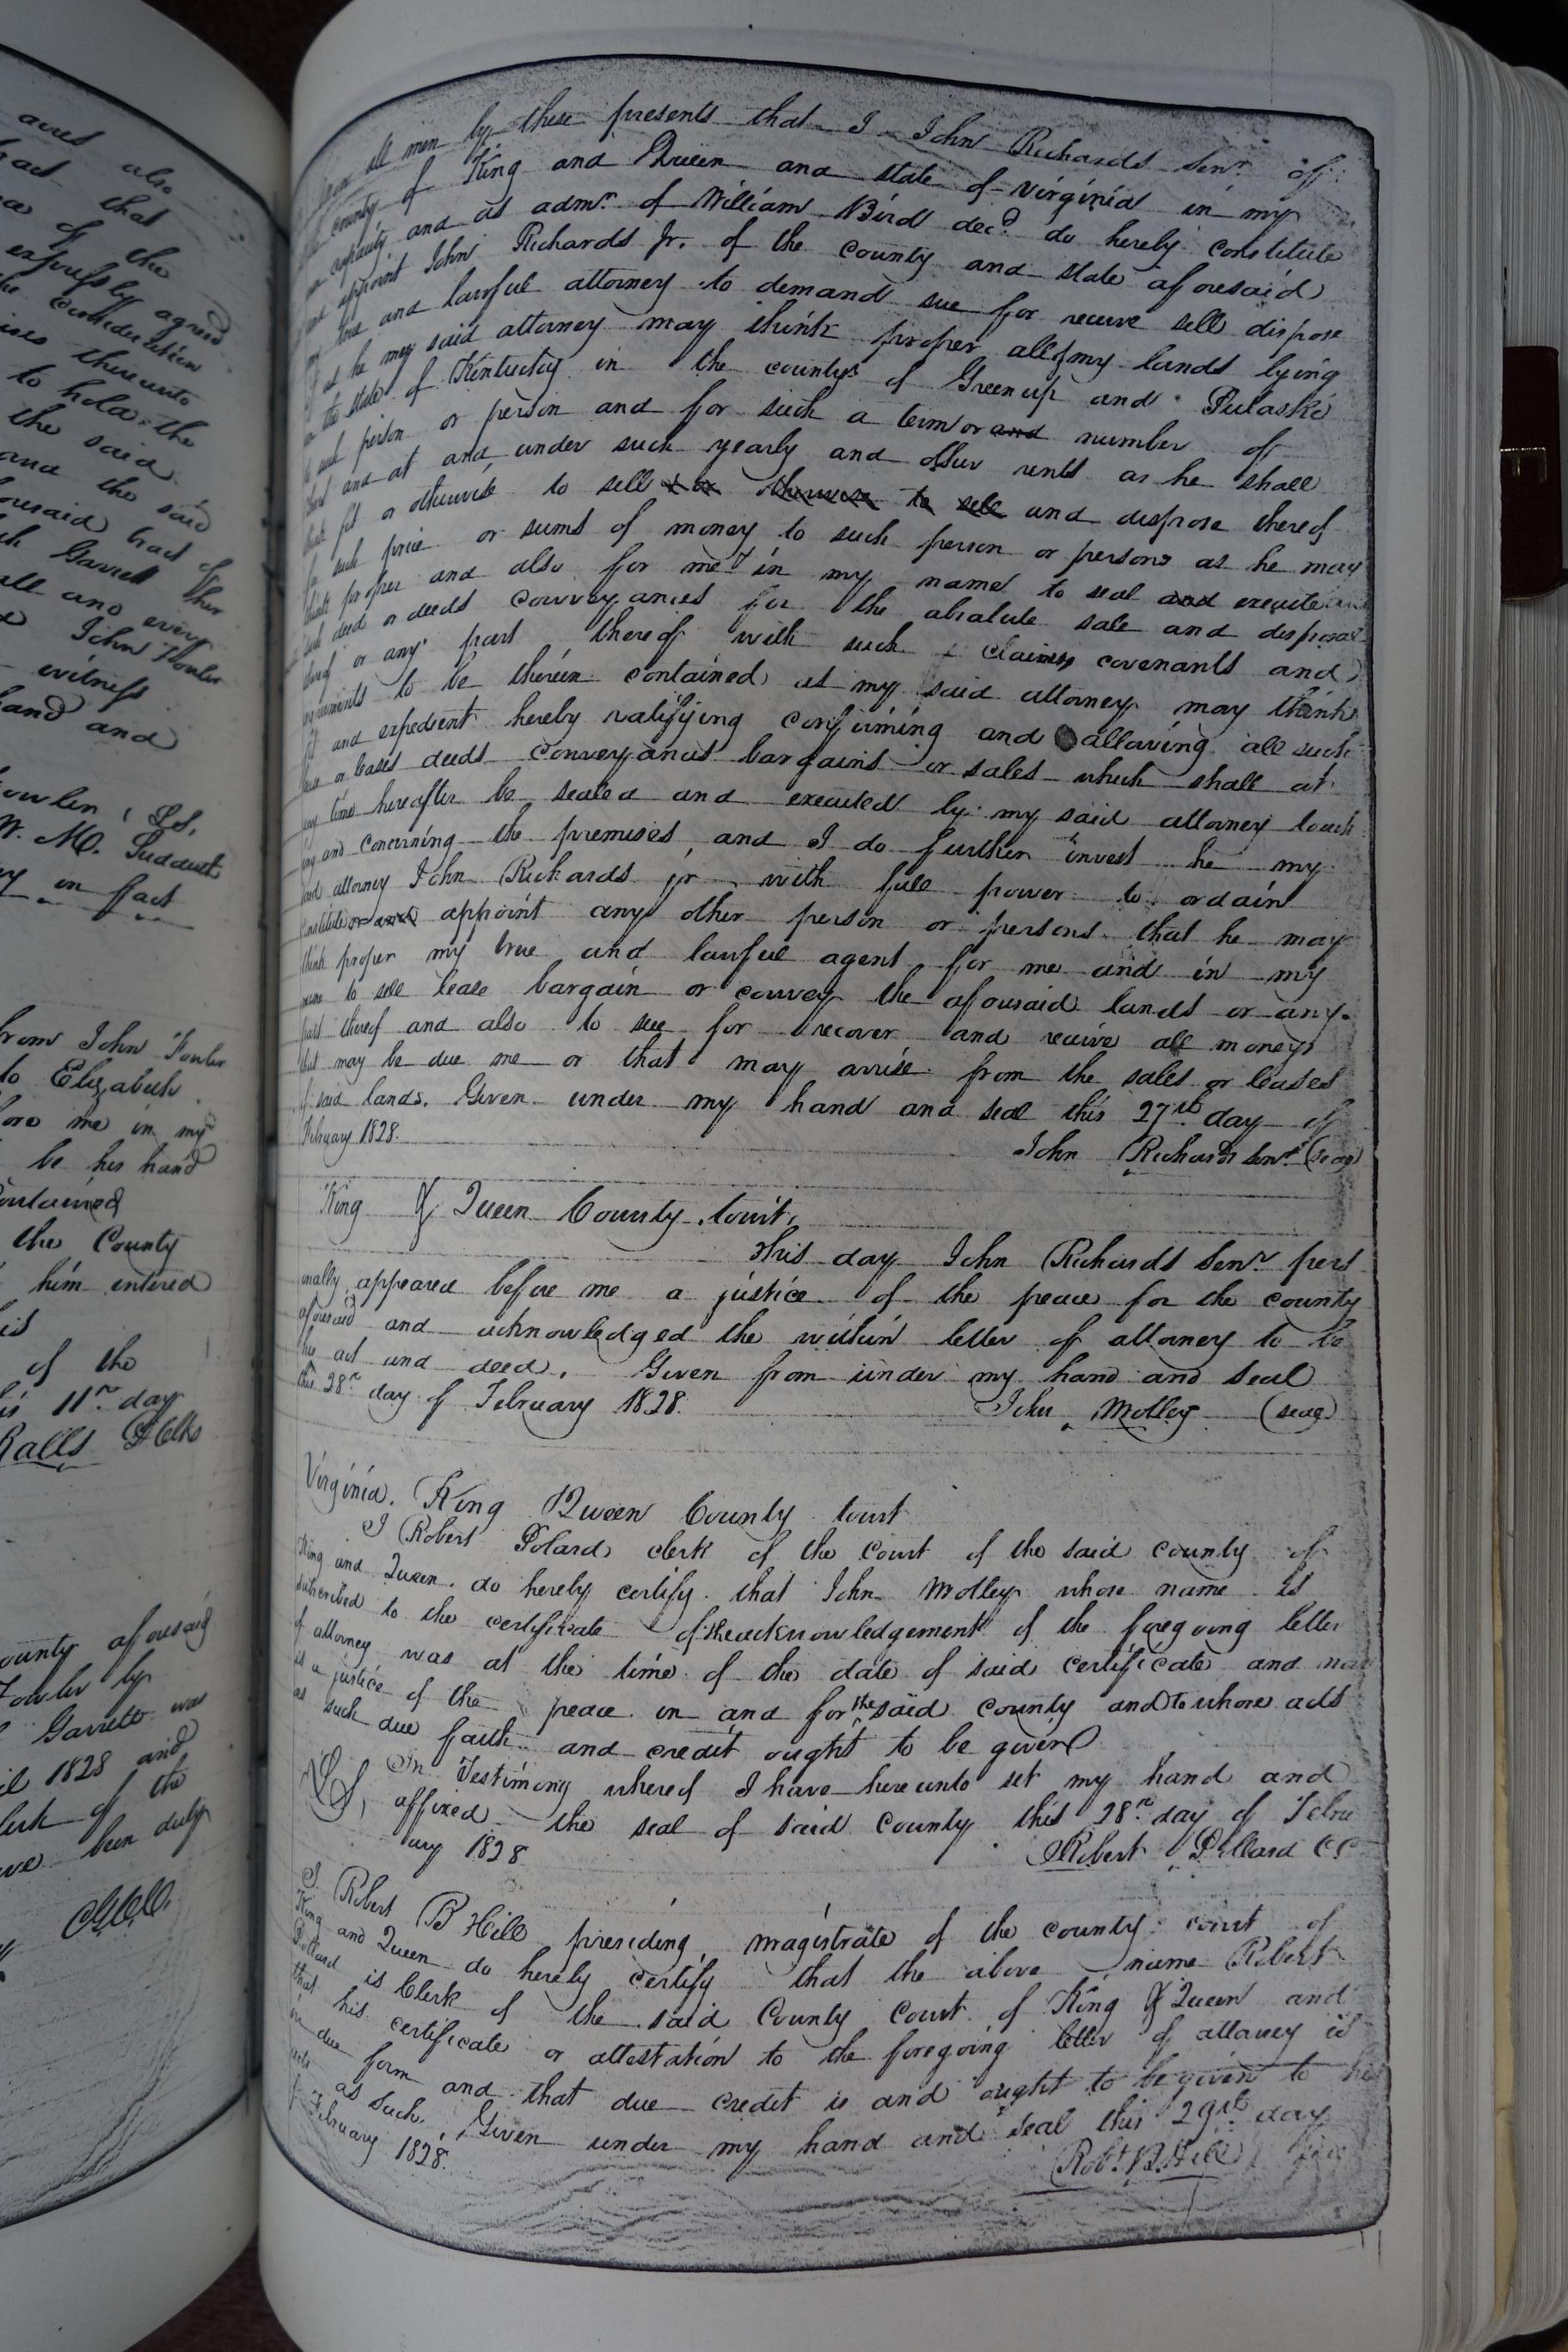 acres also
that
of the
expressly agreed
the consideration
thereunto
to hold the
the said
and the said
aforesaid tract of
Garrett
all and every
John Fowler
witness
hand and
Fowler LS.
W. M. Sudduth
in fact
from John Fowler
to Elizabeth
me in my
be his hand
contained
the County
him entered
of the
11th day
Ralls
County aforesaid
Fowler by
Garrett was
1828 and
clerk of the
been duly
all men by these presents that I John Richards Senr. of
county of King and Queen and state of Virginia in my
capacity and as admr. of William Bird decd. do hereby constitute
and appoint John Richards Jr. of the county and state aforesaid
my true and lawful attorney to demand sue for receive sell dispose
of as he my said attorney may think proper all of my lands lying
in the state of Kentucky in the countys of Greenup and Pulaski
to such person or person and for such a term or and number of
and at and under such yearly and other rents as he shall
think fit or otherwise to sell & or otherwise to sell and dispose thereof
for such price or sums of money to such person or persons as he may
think proper and also for me & in my name to seal and execute
such deed or deeds conveyances for the absolute sale and disposal
thereof or any part thereof with such claims covenants and
agreements to be therein contained as my said attorney may think
fit and expedient hereby ratifying confirming and allowing all such
lease or leases deeds conveyances bargains or sales which shall at
any time hereafter be sealed and executed by my said attorney touch
ing and concerning the premises, and I do further invest he my
said attorney John Richards jr with full power to ordain
constitute or and appoint any other person or persons that he may
think proper my true and lawful agent for me and in my
name to sell lease bargain or convey the aforesaid lands or any
part thereof and also to sue for recover and receive all moneys
that may be due me or that may arrise from the sales or leases
of said lands. Given under my hand and seal this 27th day of
February 1828.
John Richards Senr. (seal)
King & Queen County Court,
This day John Richards Senr pers
onally appeared before me a justice of the peace for the county
aforesaid and acknowledged the within letter of attorney to be
his act and deed. Given from under my hand and seal
this 28th day of February 1828.
John Motley (seal)
Virginia. King Queen County Court
I Robert Polard clerk of the Court of the said county of
King and Queen do hereby certify that John Motley whose name is
subscribed to the certificate of the acknowledgement of the foregoing letter
of attorney was at the time of the date of said certificate and now
is a justice of the peace in and for the said county and to whose acts
as such due faith and credit ought to be given
In Testimony whereof I have hereunto set my hand and
LS, affixed the seal of said County this 28th day of Febru
ary 1828
Robert Pollard CC
I Robert B Hill presiding magistrate of the county court of
King and Queen do hereby certify that the above name Robert
Pollard is Clerk of the said County Court of King & Queen and
that his certificate or attestation to the foregoing letter of attorney is
in due form and that due credit is and ought to be given to his
acts as such. Given under my hand and seal this 29th day
of February 1828.
Robt. B. Hill